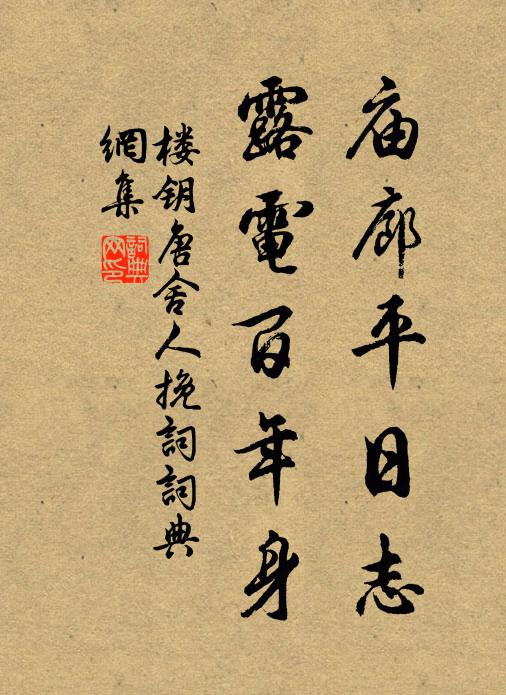 庙廊平日志
露電百年身
楼钥唐舍人挽詞詞典
網集
詞典网印